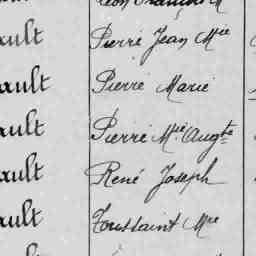 ault Pierre Jean Mie
ault Pierre Marie
ault Pierre Mie Augte
ault René Joseph
ault Toussaint Mie